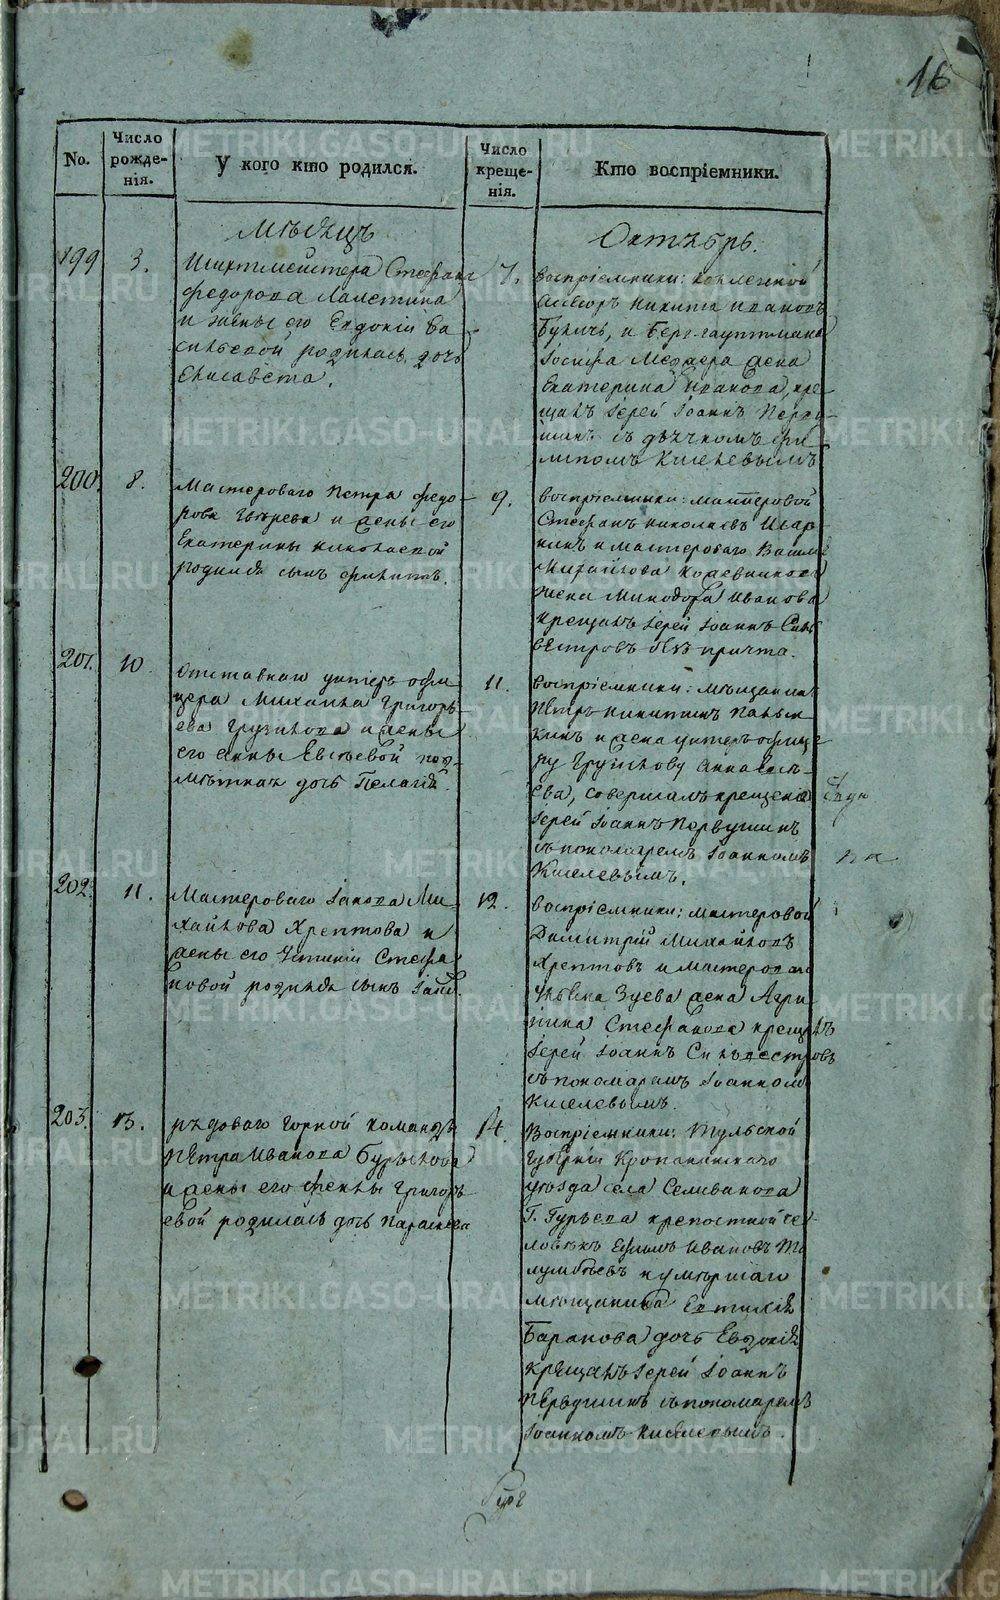 16
No.
Число рожде-нія.
У кого кто родился.
Число креще-нія.
Кто воспріемники.
Мѣсяцъ
Октябрь.
199
3.
Шихтмейстера Стефана
Федорова
и жены его Евдокіи Ва-
сильевой родилась дочь
Елисавета.
7.
Воспріемники: коллежской
Асессоръ Никита Ивановъ
и Берг-гауптмана
Іосифа жена
Екатерина Иванова, кре-
щалъ Іерей Іоаннъ Перву-
шинъ съ дьячкомъ Фи-
липомъ Киселевымъ
200.
8.
Мастероваго Петра Федо-
рова и жены его
Екатерины Николаевой
родился сынъ Филипъ.
9.
Воспріемники: мастеровой
Стефанъ Николаевъ
и мастероваго Василія
Михайлова
жена Минодора Иванова
крещалъ Іерей Іоаннъ Силь-
вестровъ безъ причта.
201.
10
Отставнаго унтеръ офи-
цера Михаила Григорь-
ева Грузилова и жены
его Анны Евсѣевой
дочь Пелагія.
11.
Воспріемники: мѣщанинъ
Петръ Никитинъ Панью-
кинъ и жена унтеръ офице-
ру Грузилову Анна Евсѣ-
ева, совершалъ крещеніе
Іерей Іоаннъ Первушинъ
съ пономаремъ Іоанномъ
Киселевымъ.
202.
11.
Мастероваго Іакова Ми-
хайлова Хрептова и
жены его Устиніи Стефа-
новой родился сынъ
12.
Воспріемники: мастеровой
Димитрій Михайловъ
Хрептовъ и мастероваго
Зуева жена Агри-
пина Стефанова крещалъ
Іерей Іоаннъ Сильвестровъ
съ пономаремъ Іоанномъ
Киселевымъ.
203.
13.
рядоваго Горной команды
Петра Иванова Бурылова
и жены его Феклы Григорь-
евой родилась дочь Параскева
14.
Воспріемники: Тульской
Губерніи
уѣзда села Селиванова
Г. Гурьева крепостной че-
ловѣкъ Ефимъ Ивановъ
и умершаго
мѣщанина
Баранова дочь Евдокія
крещалъ Іерей Іоаннъ
Первушинъ съ пономаремъ
Іоанномъ Киселевымъ.
METRIKI.GASO-URAL.RU